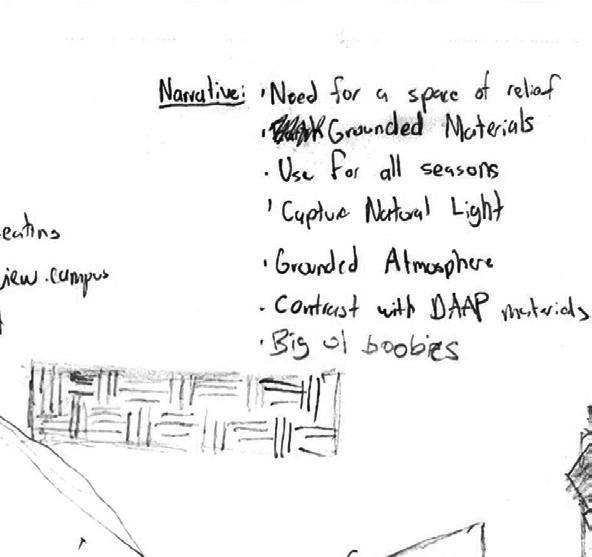 Narrative: · Need for a space of relief
· Grounded Materials
· Use for all seasons
· Capture Natural Light
eating
iew campus
· Grounded Atmosphere
· Contrast with DAAP materials
· Big ol boobies